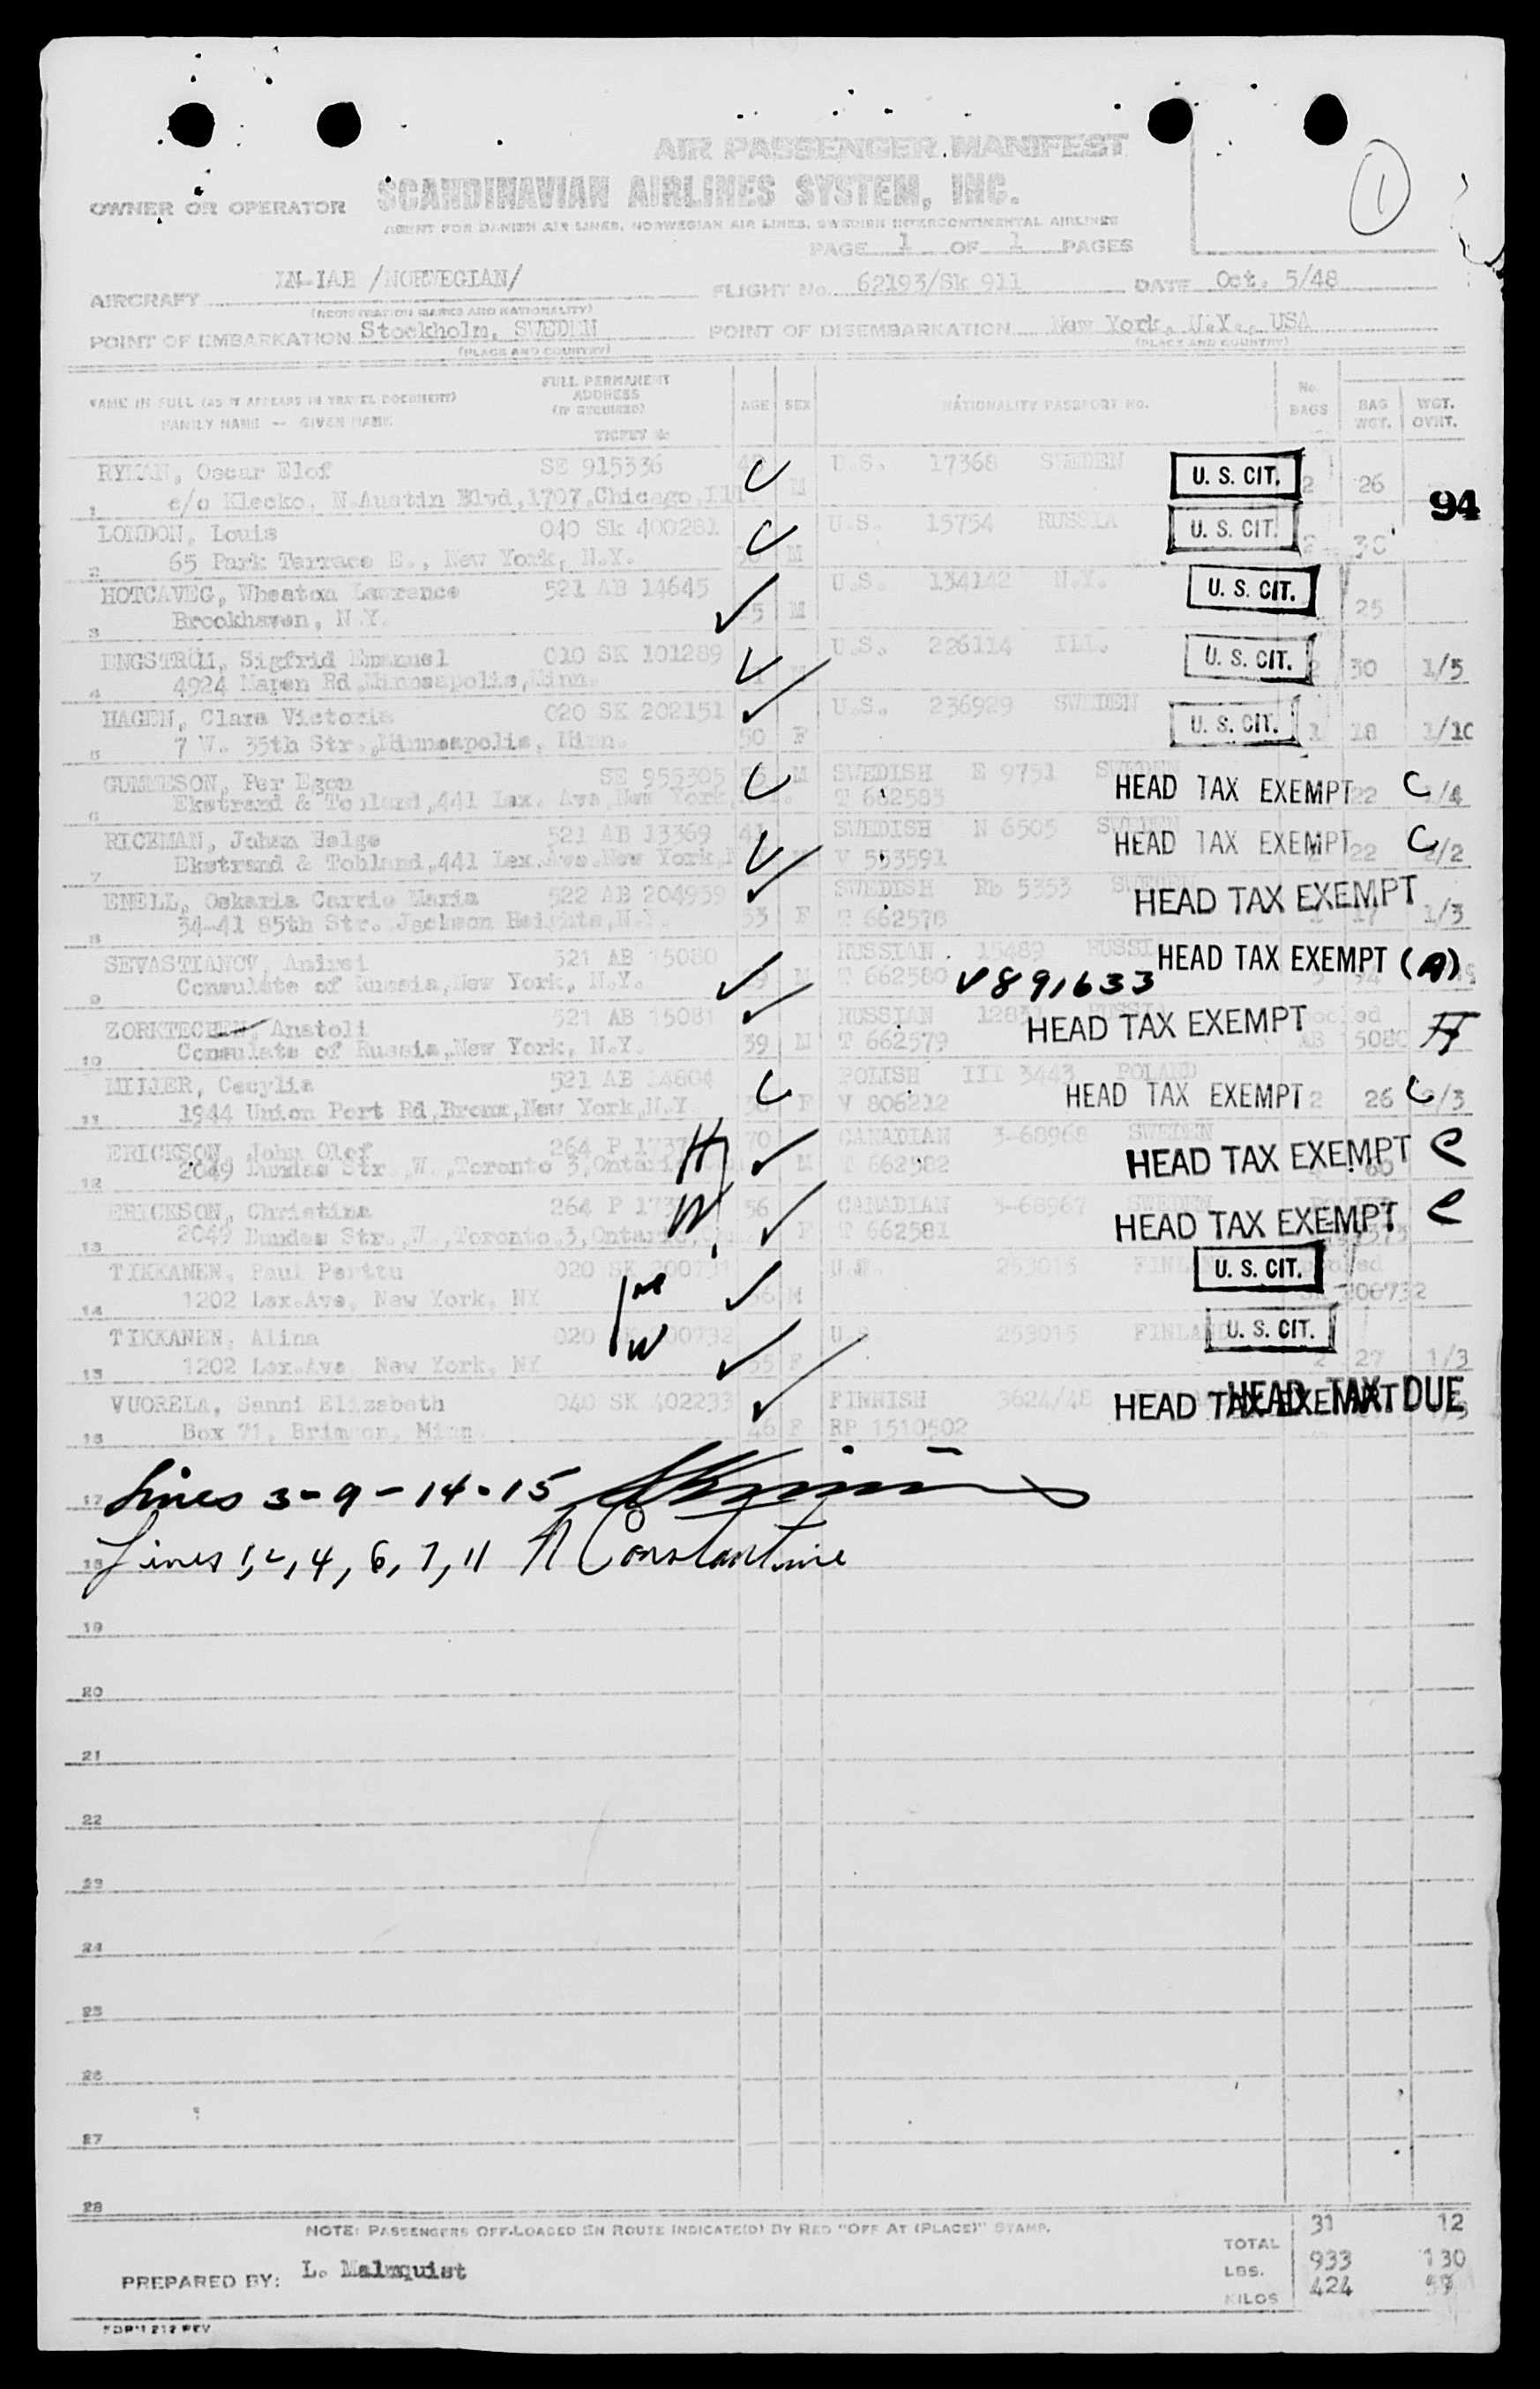 1
AIR PASSENGER MANIFEST
OWNER OR OPERATOR SCANDINAVIAN AIRLINES SYSTEM, INC.
AGENT FOR DANISH AIR LINES, NORWEGIAN AIR LINES, SWEDISH INTERCONTINENTAL AIRLINES
PAGE 1 OF 1 PAGES
AIRCRAFT LN-IAB /NORWEGIAN/ FLIGHT No. 62193/Sk 911 DATE Oct. 5/48
(REGISTRATION MARKS AND NATIONALITY)
POINT OF EMBARKATION Stockholm, SWEDEN POINT OF DISEMBARKATION New York, N.Y., USA
(PLACE AND COUNTRY) (PLACE AND COUNTRY)
NAME IN FULL (AS IT APPEARS IN TRAVEL DOCUMENT) FULL PERMANENT ADDRESS (IF REQUIRED) AGE SEX NATIONALITY PASSPORT No. No. BAGS BAG WGT. WGT. OVHT.
FAMILY NAME -- GIVEN NAME TICKET
RYMAN, Oscar Elof SE 915336 U.S. 17368 SWEDEN U. S. CIT. 2 26
1 c/o Klecko, N.Austin Blvd,1707,Chicago,Ill M
94
LONDON, Louis 040 Sk 400281 U.S. 15754 RUSSIA U. S. CIT. 2 30
2 65 Park Terrace E., New York, N.Y. M
Wheaton Lawrence 521 AB 14645 U.S. 134142 N.Y. U. S. CIT. 25
3 Brookhaven, N.Y. M
ENGSTRÖM, Sigfrid Emanuel 010 SK 101289 U.S. 226114 ILL. U. S. CIT. 2 30 1/5
4 4924 Rd,Minneapolis,Minn.
HAGEN, Clara Victoria 020 SK 202151 U.S. 236929 SWEDEN U. S. CIT. 1 18 1/10
5 7 W. 35th Str.,Minneapolis, Minn. 50 F
GUMMESON, Per Egon SE 955305 M SWEDISH E 9751 SWEDEN HEAD TAX EXEMPT 22 C /4
6 Ekstrand & Tobland,441 Lex. Ave,New York, T 662583
RICKMAN, Johan Helge 521 AB 13369 41 SWEDISH N 6505 SWEDEN HEAD TAX EXEMPT 22 C /2
7 Ekstrand & Tobland,441 Lex.Ave.New York, V 553591
ENELL, Oskaria Carrie Maria 522 AB 204959 SWEDISH Rb 5353 SWEDEN HEAD TAX EXEMPT 1 17 1/3
8 34-41 85th Str. Jackson Heights,N.Y. 53 F T 662578
SEVASTIANOV, Andrei 521 AB 15080 RUSSIAN 15489 RUSSI HEAD TAX EXEMPT (A)
9 Consulate of Russia,New York, N.Y. T 662580 V891633
Anatoli 521 AB 15081 RUSSIAN HEAD TAX EXEMPT
10 Consulate of Russia,New York, N.Y. 39 M T 662579 AB 5080
MILLER, Cecylia 521 AB 14804 POLISH III 3443 POLAND HEAD TAX EXEMPT 2 26 C /3
11 1944 Union Port Rd,Bronx,New York,N.Y F V 806212
ERICKSON, John Olof 264 P 1737 H 70 CANADIAN 3-68968 SWEDEN HEAD TAX EXEMPT C
12 2049 Dundas Str.,W.,Toronto 3,Ontario, M T 662582 60
ERICKSON, Christina 264 P 173 W 56 CANADIAN 3-68967 SWEDEN HEAD TAX EXEMPT C
13 2049 Dundas Str.,W.,Toronto,3,Ontario, F T 662581
TIKKANEN, Paul Perttu 020 SK 200731 253015 FINLAND U. S. CIT.
14 1202 Lex.Ave, New York, NY M SK 200732
TIKKANEN, Alina 020 200732 W U.S. 253015 FINLAND U. S. CIT.
15 1202 Lex.Ave, New York, NY 55 F 2 27 1/3
VUORELA, Sanni Elizabeth 040 SK 402233 FINNISH 3624/48 HEAD TAX EXEMPT HEAD TAX DUE
16 Box 71, Brimson, Minn. 46 F RP 1510502
17 Lines 3-9-14-15
18 Lines 1,2,4,6,7,11 Constantine
19
20
21
22
23
24
25
26
27
28
NOTE: PASSENGERS OFF-LOADED EN ROUTE INDICATE(D) BY RED "OFF AT (PLACE)" STAMP.
TOTAL 31 12
PREPARED BY: L. Malmquist LBS. 933 130
KILOS 424 59
FORM 212 REV